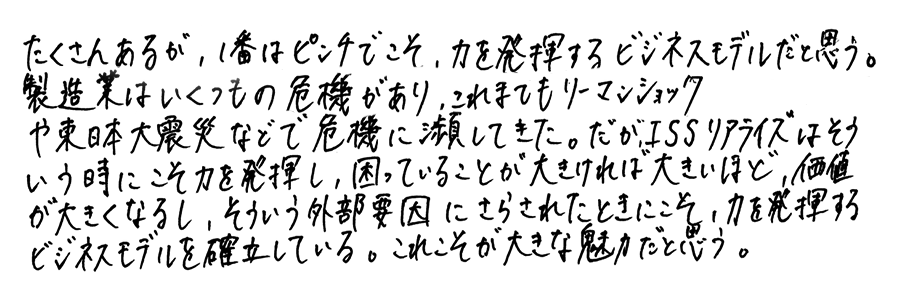 たくさんあるが、1番はピンチでこそ、力を発揮するビジネスモデルだと思う。
製造業はいくつもの危機があり、これまでもリーマンショック
や東日本大震災などで危機に瀕してきた。だが、ISSリアライズはそう
いう時にこそ力を発揮し、困っていることが大きければ大きいほど、価値
が大きくなるし、そういう外部要因にさらされたときにこそ、力を発揮する
ビジネスモデルを確立している。これこそが大きな魅力だと思う。